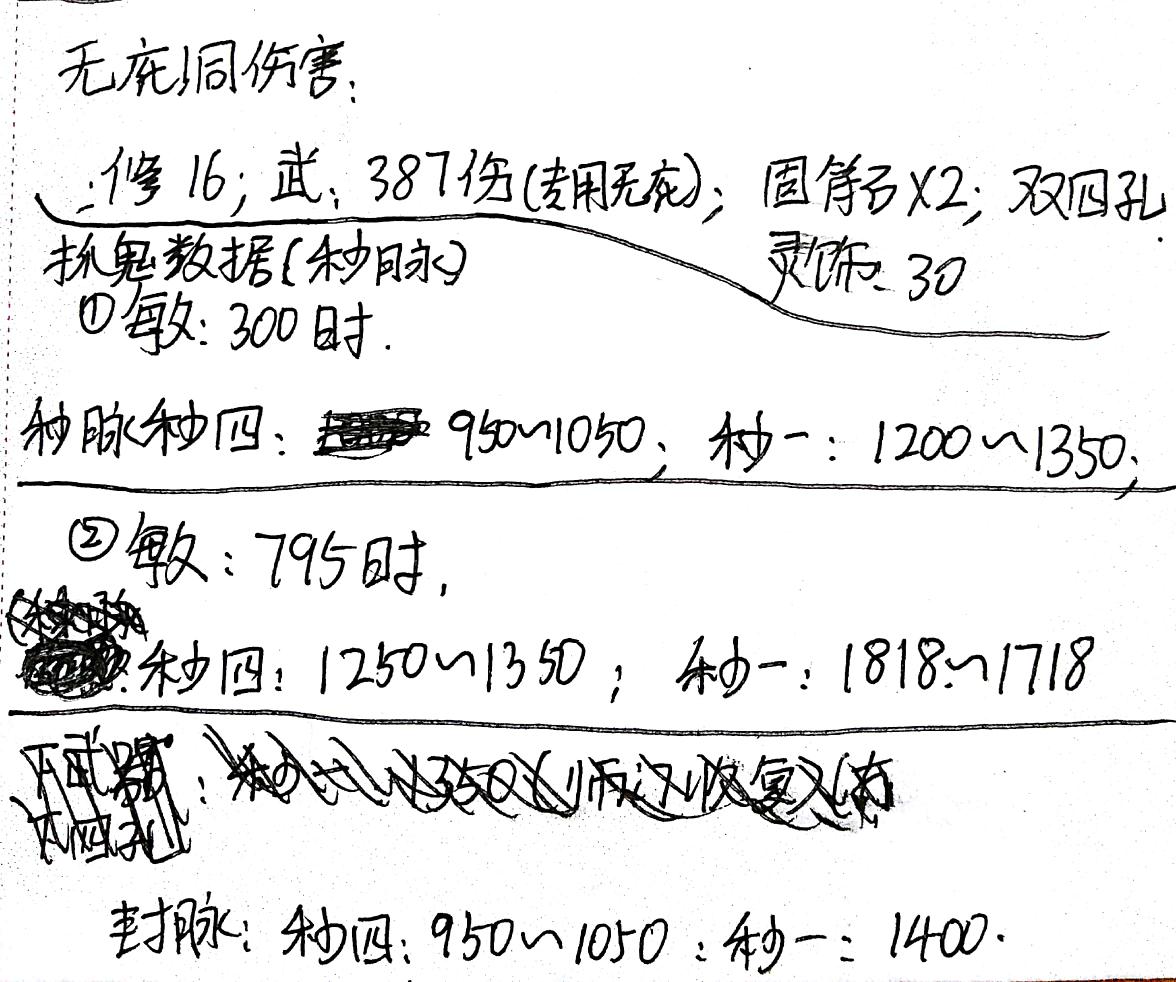 无底洞伤害:
:修16; 武: 387伤(专用无底); 固符石X2; 双四孔.
灵饰: 30
抓鬼数据(秒脉)
①敏: 300时.
秒脉秒四: 950~1050; 秒一: 1200~1350;
②敏: 795时.
秒四: 1250~1350; 秒一: 1818~1718
封脉: 秒四: 950~1050: 秒一: 1400.